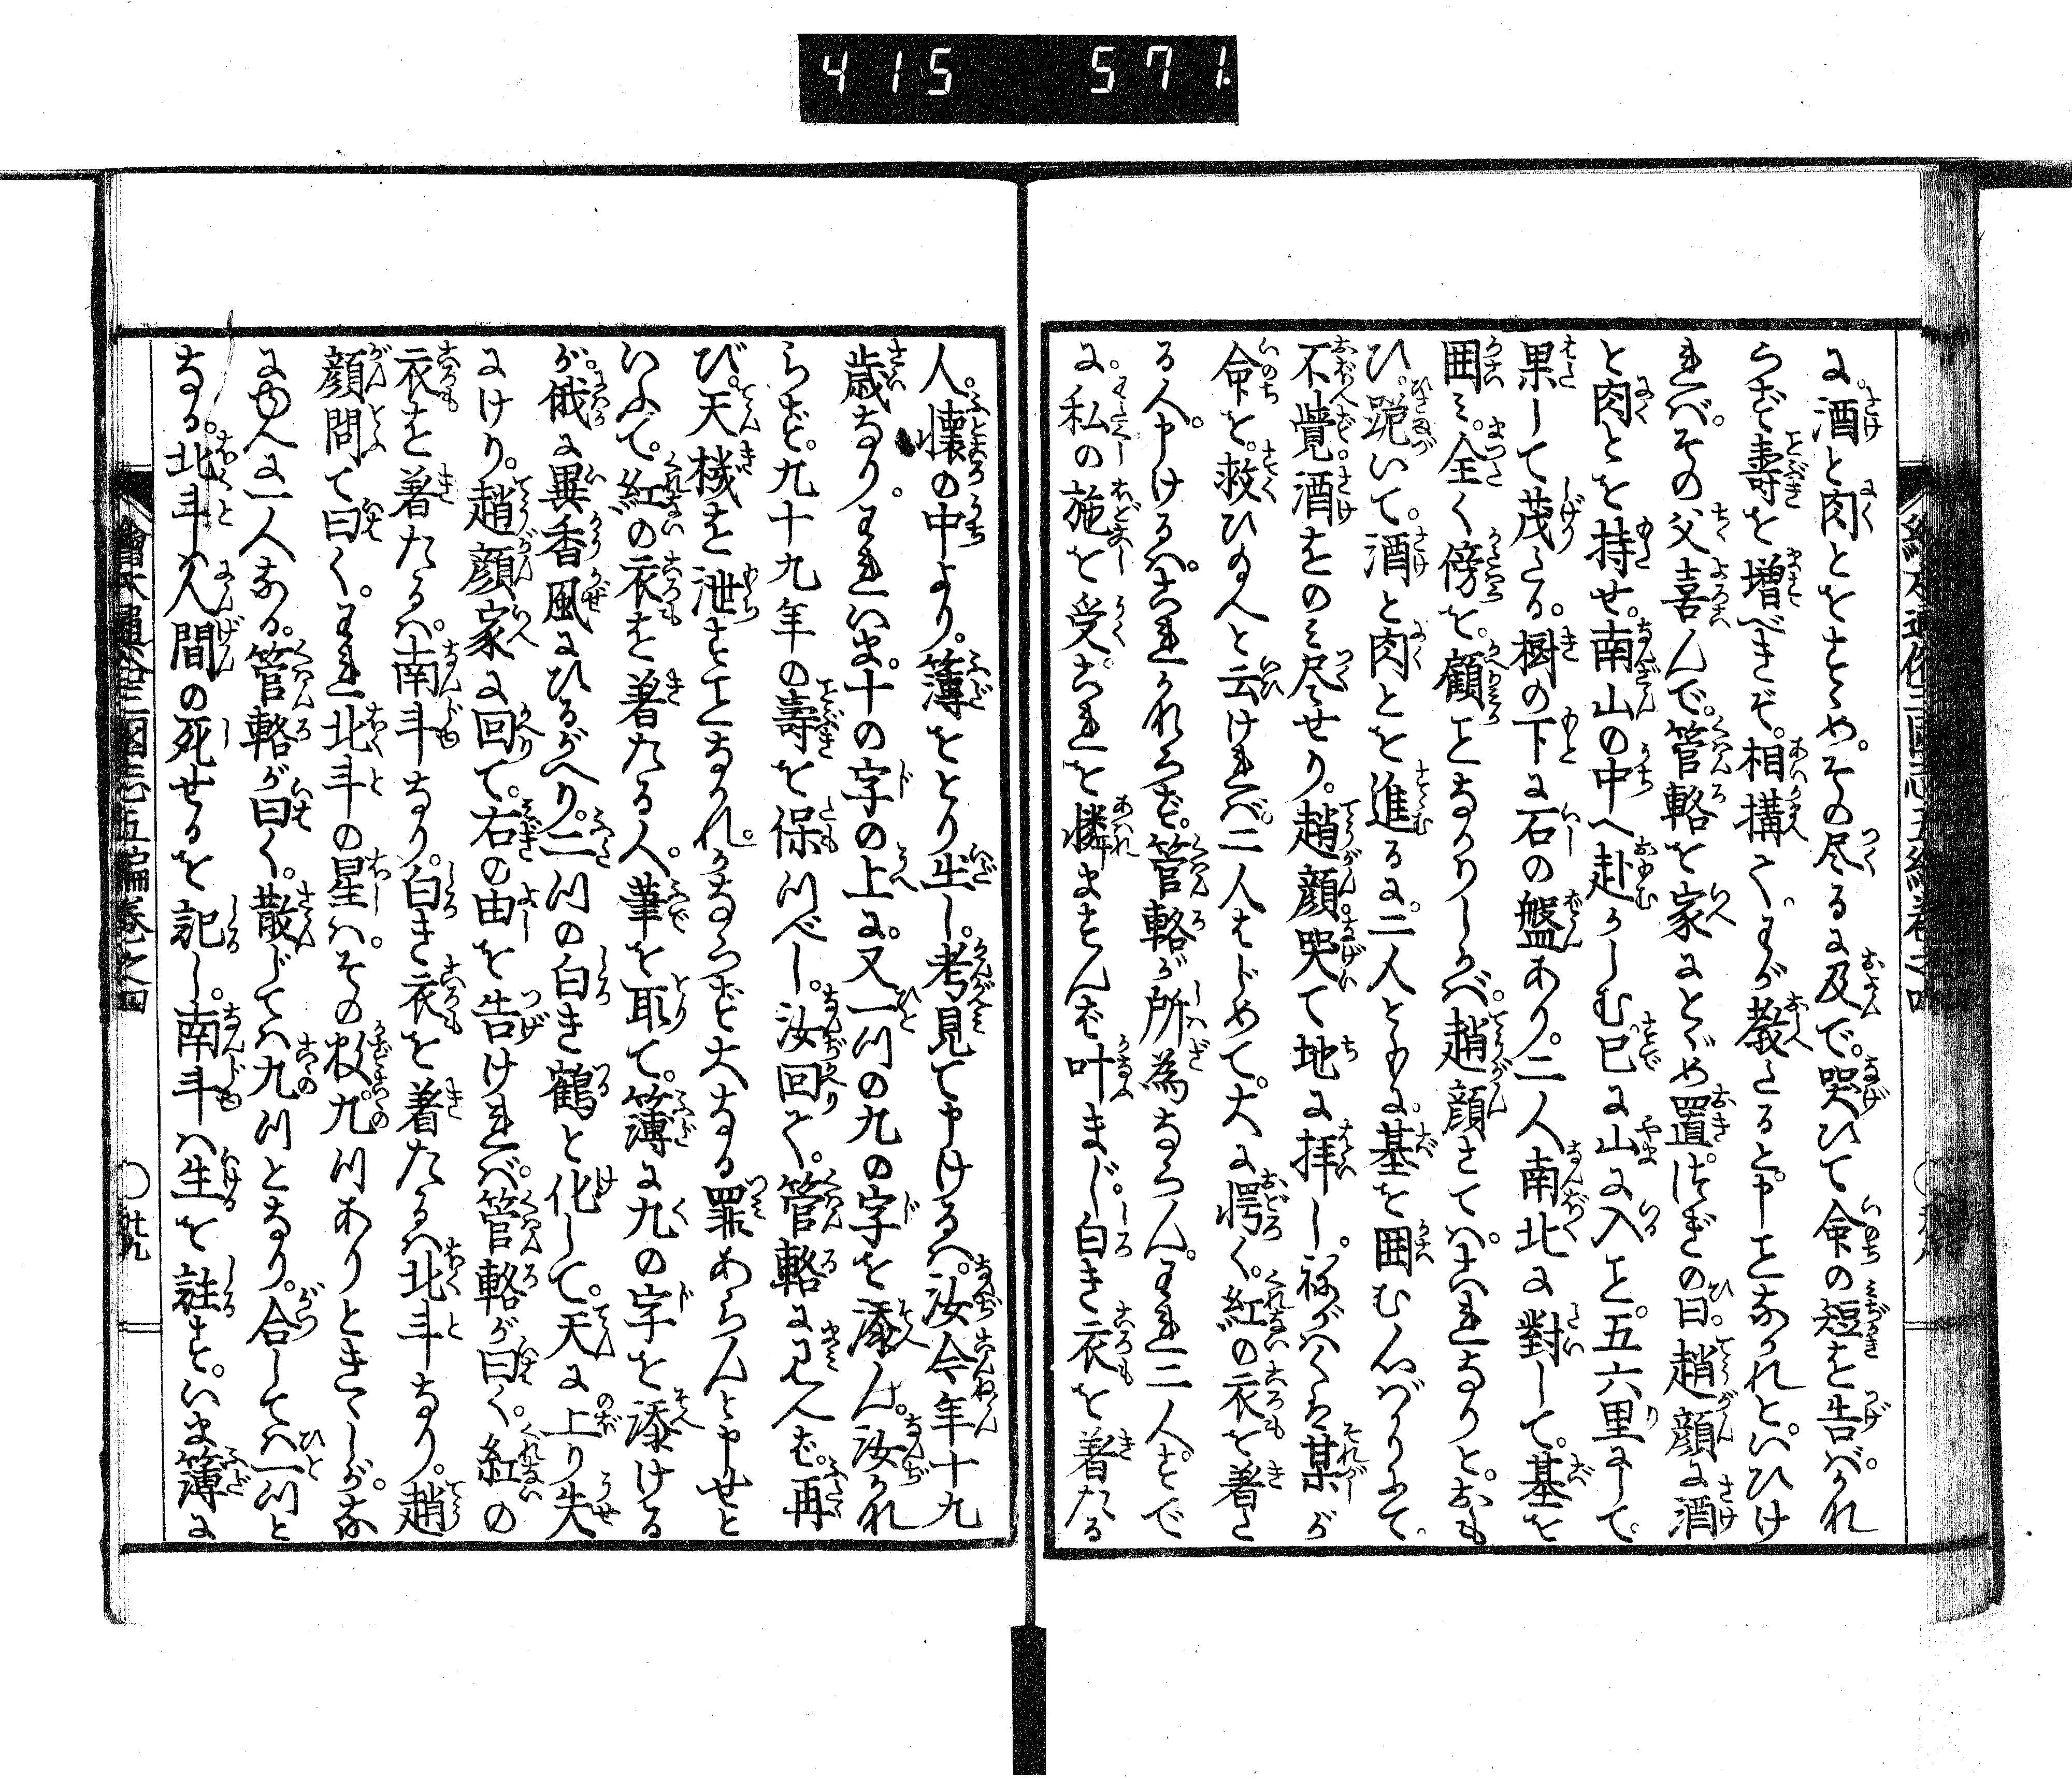 415 571
に。酒と肉とをすゝめ。その尽るに及で。哭ひて命の短を告ば。かれ
らず壽を増べきぞ。相構て。わが教とると申ことなかれと。いひけ
れば。その父喜んで。管輅を家にとゞめ置。次ぎの日。趙顔に酒
と肉とを持せ。南山の中へ赴かしむ。已に山に入こと。五六里にして。
果して茂たる。樹の下に石の盤あり。二人南北に對して。碁を
囲み。全く傍を。顧ことなかりしかば。趙顔さては。これなりと。おも
ひ。跪いて。酒と肉とを進るに。二人ともに。碁を囲む心ばかりにて。
不覚酒をのみ尽せり。趙顔。哭て地に拝し。ねがはくは某が
命を。救ひ給へと云ければ。二人はじめて。大に愕く。紅の衣を着た
る人申けるは。これかならず。管輅が所為ならん。われ二人すで
に。私の施を受。これを憐ますんば叶まじ。白き衣を着たる
人。懐の中より。簿をとり出し。考見て申けるは。汝今年十九
歳なり。われいま。十の字の上に。又一川の九の字を添ん。汝かな
らず。九十九年の壽を保つべし。汝回て。管輅に見へば。再
び。天機を泄すことなかれ。かならず大なる罪あらんと申せと
いふて。紅の衣を着たる人。筆を取て。簿に九の字を添ける
が。俄に異香風にひるがへり。二つの白き鶴と化して。天に上り失
にけり。趙顔家に回て。右の由を告ければ。管輅が曰く。紅の
衣を着たるは。南斗なり。白き衣を着たるは北斗なり。趙
顔問て曰く。われ北斗の星は。その数。九つありときゝしが。な
にゆへに一人なる。管輅が曰く。散じては九つとなり。合しては一つと
なる。北斗は人間の死せるを記し。南斗は生を註す。いま簿に
繪本通俗三國志五編巻之四
〇廿九